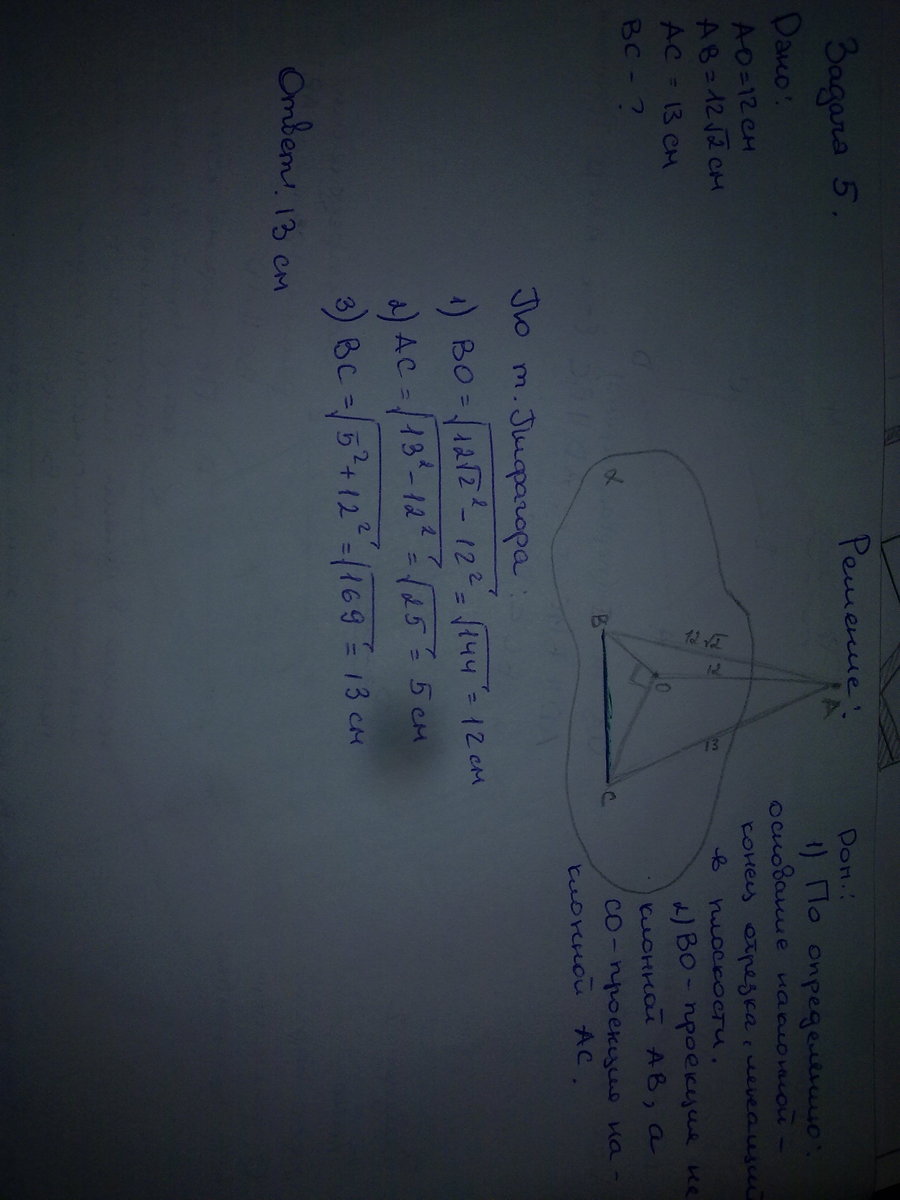 Задача 5.
Дано:
AO=12 см
AB=12√2 см
AC=13 см
BC - ?
Решение:
A
12√2
12
13
B
O
C
α
Доп.:
1) По определению:
основание наклонной -
конец отрезка, лежащий
в плоскости.
2) BO - проекция не
клонной AB, а
CO - проекция на-
клонной AC.
По т. Пифагора:
1) BO = √12√2² - 12² = √144 = 12 см
2) AC = √13² - 12² = √25 = 5 см
3) BC = √5² + 12² = √169 = 13 см
Ответ: 13 см